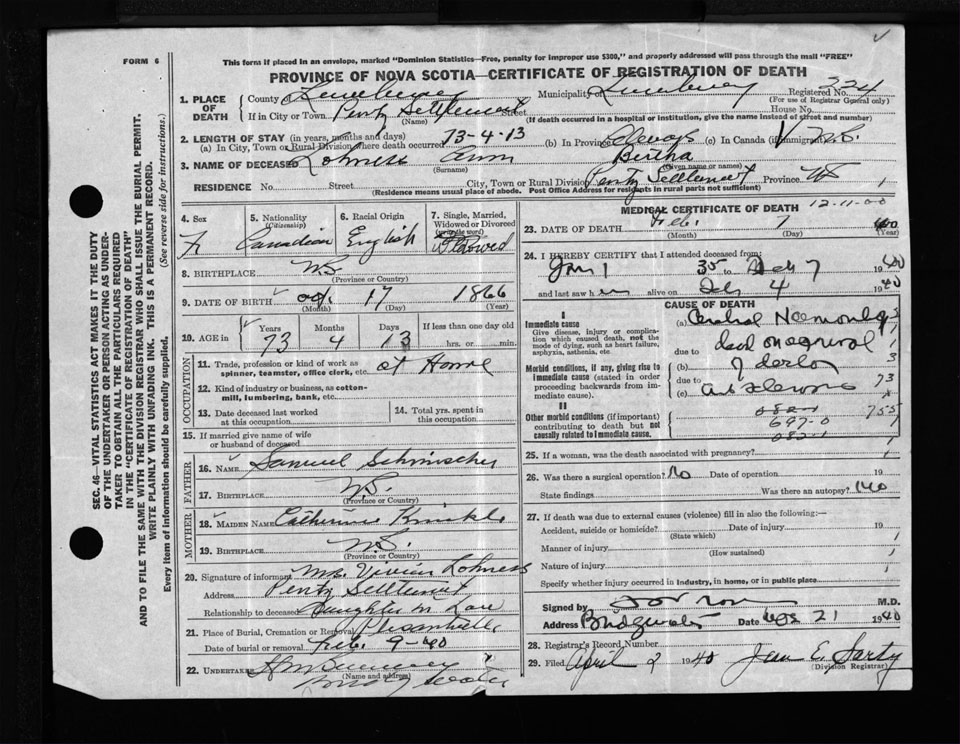 FORM 6
This form if placed in an envelope, marked "Dominion Statistics—Free, penalty for improper use $300," and properly addressed will pass through the mail "FREE"
PROVINCE OF NOVA SCOTIA—CERTIFICATE OF REGISTRATION OF DEATH
1. PLACE OF DEATH
County of Lunenburg Municipality of Lunenburg Registered No. 324
(For use of Registrar General only)
If in City or Town Pentz Settlement Street House No.
(Name) (If death occurred in a hospital or institution, give the name instead of street and number)
2. LENGTH OF STAY (in years, months and days)
(a) In City, Town or Rural Division where death occurred 73-4-13 (b) In Province Always (c) In Canada (if immigrant)
3. NAME OF DECEASED Lohness Ann Bertha
(Surname) (Given name or names)
RESIDENCE No. Street City, Town or Rural Division Pentz Settlement Province NS 1
(Residence means usual place of abode. Post Office Address for residents in rural parts not sufficient)
4. Sex F
5. Nationality (Citizenship) Canadian
6. Racial Origin English
7. Single, Married, Widowed or Divorced (write the word) Widowed
8. BIRTHPLACE N.S.
(Province or Country)
9. DATE OF BIRTH 17 1866
(Month) (Day) (Year)
10. AGE Years 73 Months 4 Days 13 If less than one day old hrs. or min.
OCCUPATION
11. Trade, profession or kind of work as spinner, teamster, office clerk, etc. at Home
12. Kind of industry or business, as cotton-mill, lumbering, bank, etc.
13. Date deceased last worked at this occupation
14. Total yrs. spent in this occupation
15. If married give name of wife or husband of deceased
FATHER
16. NAME Samuel
17. BIRTHPLACE N.S.
(Province or Country)
MOTHER
18. MAIDEN NAME Catherine
19. BIRTHPLACE N.S.
(Province or Country)
20. Signature of informant Mrs. Vivian Lohness
Address Pentz Settlement
Relationship to deceased Daughter in Law
21. Place of Burial, Cremation or Removal Pleasantville
Date of burial or removal Feb. 9-40
22. UNDERTAKER
(Name and address)
MEDICAL CERTIFICATE OF DEATH 12-11-00
23. DATE OF DEATH Feb. 7 40
(Month) (Day) (Year)
24. I HEREBY CERTIFY that I attended deceased from:
Jan 1 35 to Feb 7 1940
and last saw h er alive on Feb 4 1940
CAUSE OF DEATH
I
Immediate cause
Give disease, injury or complication which caused death, not the mode of dying, such as heart failure, asphyxia, asthenia, etc.
(a) Cerebral
due to
Morbid conditions, if any, giving rise to immediate cause (stated in order proceeding backwards from immediate cause).
(b)
due to
(c)
II
Other morbid conditions (if important) contributing to death but not causally related to immediate cause.
25. If a woman, was the death associated with pregnancy?
26. Was there a surgical operation? No Date of operation 19
State findings Was there an autopsy? No
27. If death was due to external causes (violence) fill in also the following:—
Accident, suicide or homicide? Date of injury 19
(State which)
Manner of injury
(How sustained)
Nature of injury
Specify whether injury occurred in industry, in home, or in public place
Signed by M.D.
Address Bridgewater Date 21 1940
28. Registrar's Record Number
29. Filed April 2 1940 Jean E. Sarty
(Division Registrar)
SEC. 46—VITAL STATISTICS ACT MAKES IT THE DUTY OF THE UNDERTAKER OR PERSON ACTING AS UNDERTAKER TO OBTAIN ALL THE PARTICULARS REQUIRED IN THE "CERTIFICATE OF REGISTRATION OF DEATH"
AND TO FILE THE SAME WITH THE DIVISION REGISTRAR WHO SHALL ISSUE THE BURIAL PERMIT.
WRITE PLAINLY WITH UNFADING INK. THIS IS A PERMANENT RECORD.
Every item of information should be carefully supplied. (See reverse side for instructions).